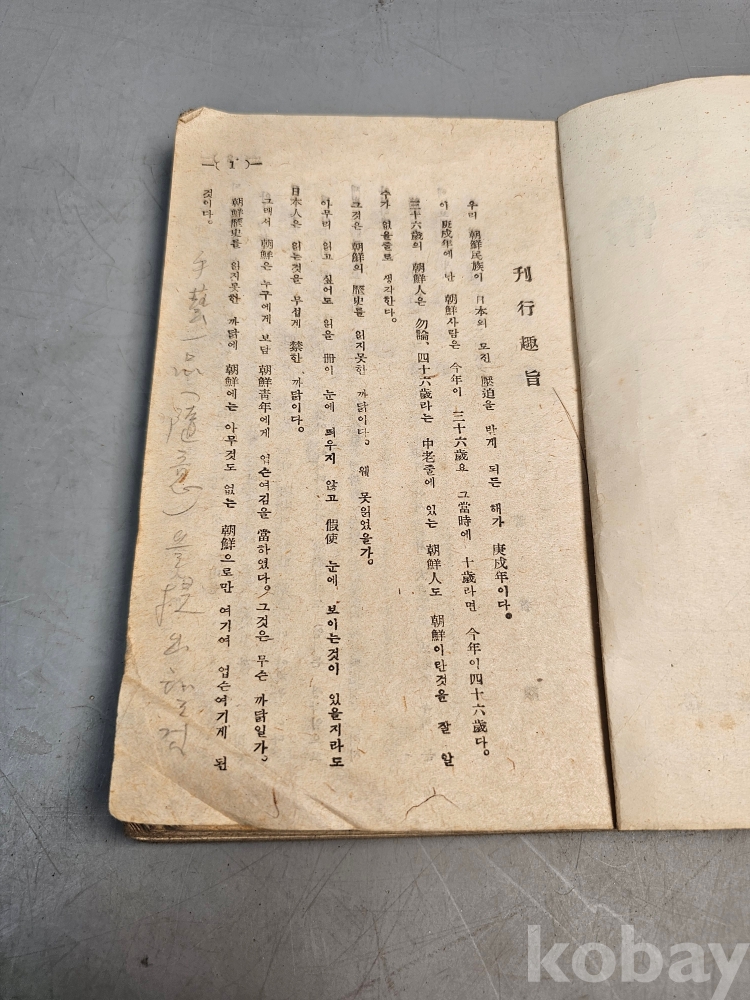 刊行趣旨
우리 朝鮮民族이 日本의 모진 壓迫을 받게 되든 해가 庚戌年이다。
이 庚戌年에 난 朝鮮사람은 今年이 三十六歲요 그當時에 十歲라면 今年이四十六歲다。
三十六歲의 朝鮮人은 勿論、四十六歲라는 中老줄에 있는 朝鮮人도 朝鮮이란것을 잘 알
수가 없을줄로 생각한다。
그것은 朝鮮의 歷史를 읽지못한 까닭이다。 웨 못읽었을가。
아무리 읽고 싶어도 읽을 冊이 눈에 띄우지 않고 假使 눈에 보이는것이 있을지라도
日本人은 읽는것을 무섭게 禁한 까닭이다。
그래서 朝鮮은 누구에게 보담 朝鮮靑年에게 업슨여김을 當하였다。 그것은 무슨 까닭일가。
朝鮮歷史를 읽지못한 까닭에 朝鮮에는 아무것도 없는 朝鮮으로만 여기여 업슨여기게 된
것이다。
—( 1 )—
(隨意)
kobay